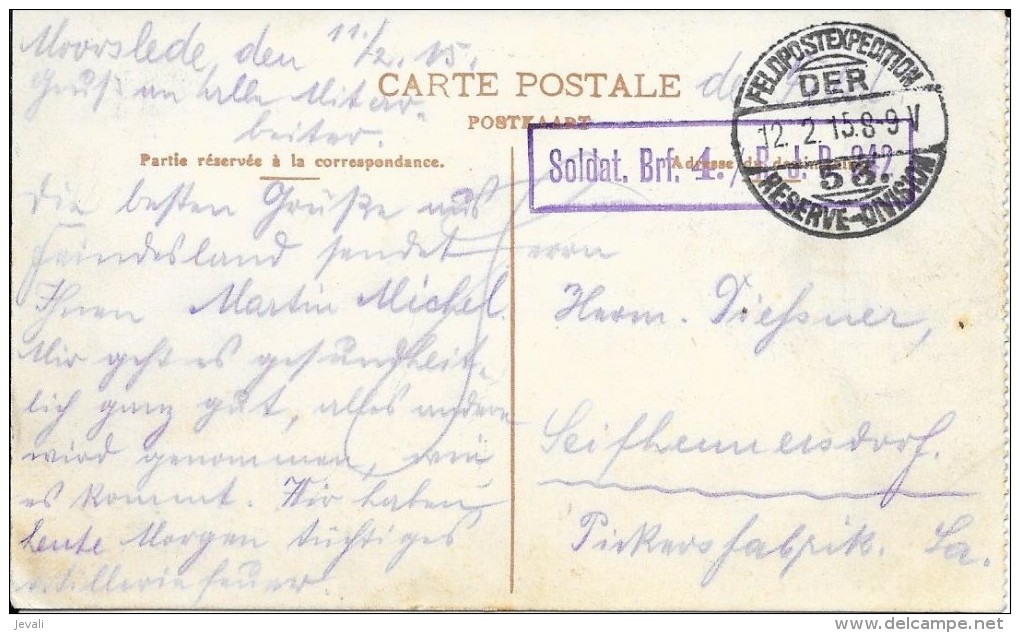 Moorslede, den 11./2. 15.
Gruß an alle Mitar-
beiter.
CARTE POSTALE
POSTKAART
Partie réservée à la correspondance.
Die besten Grüße aus
Feindesland sendet
Ihnen Martin Michel.
Mir geht es gesundheit-
lich ganz gut, alles andere
wird genommen, wie
es kommt. Wir haben
heute Morgen tüchtiges
Artilleriefeuer.
FELDPOSTEXPEDITION
DER
12. 2. 15. 8-9 V
53.
RESERVE-DIVISION
Soldat. Brf. 4. / R. J. R.
Adresse du
Herrn
Herm. Dießner,
Seifhennersdorf.
Pickersfabrik. Sa.
jevali
www.delcampe.net